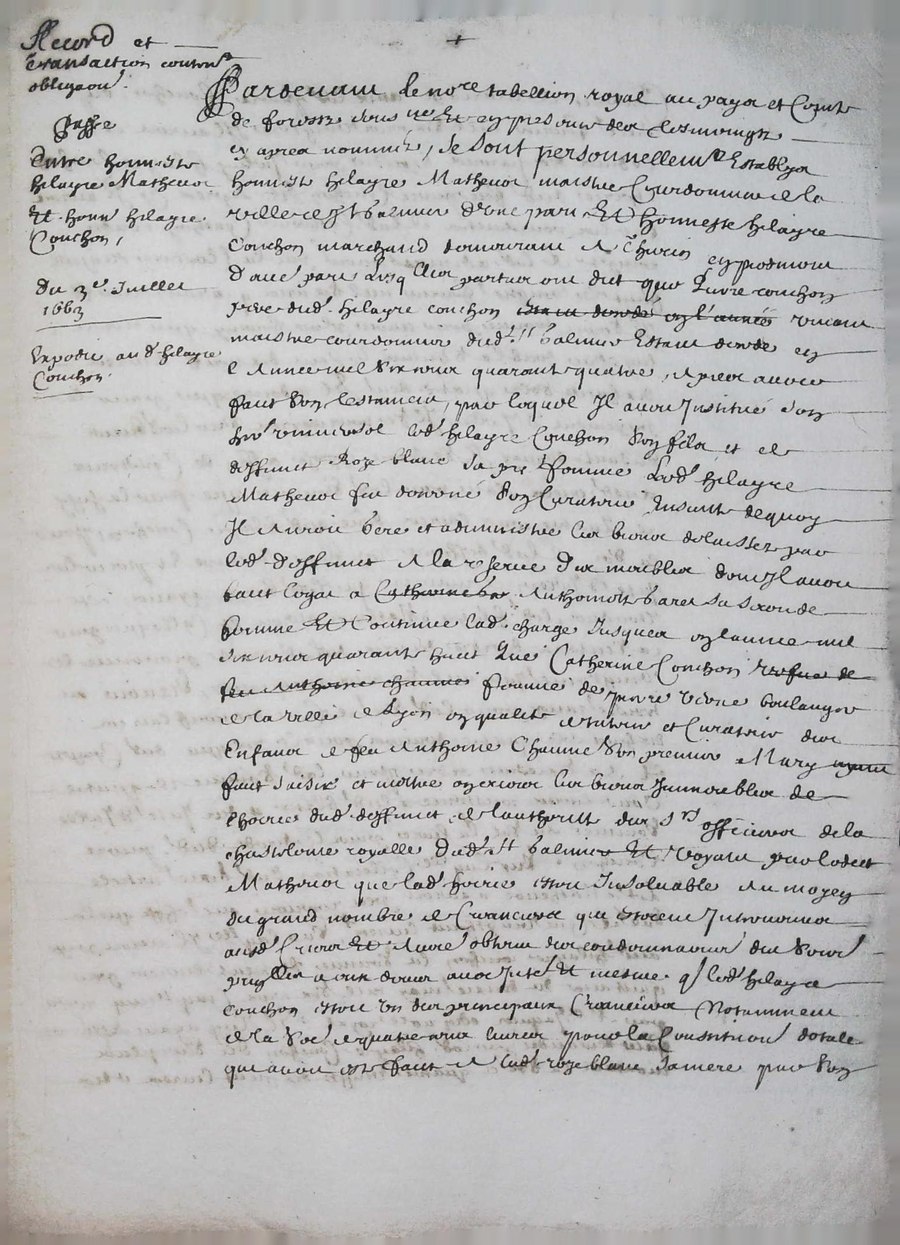 Accord et
transaction conten.t
obligaon.
Passe
Entre honneste
hilayre Mathevot
Et honn. hilayre
Couchon,
du 3.e Juillet
1663
Expedie au d. hilayre
Couchon.
+
Pardevant le no.re tabellion royal au pays et Comte
de forestz soub.ne Et en presence des tesmoingtz
cy apres nommés, Se sont personnellem.t Establys
honneste hilayre Mathevot maistre Courdonnier de la
ville de S.t Galmier d'une part Et Honneste hilayre
Couchon marchand demeurant A Thurin en piedmont
d'aut.e part Lesq.lles parties ont dit que pierre couchon
pere dud. hilayre couchon vivant
maistre courdonnier dud. S.t Galmier Estant decede en
l'Annee mil six cent quarante quatre, Apres avoir
faict son testament, par lequel Il avoit Institué son
her. universel led. hilayre Couchon son filz et de
deffunte Roze blanc sa pre. femme Led. hilayre
Mathevot fut donné son Curateur Ensuite dequoy
Il auroit geré et administré les biens delaissez par
led. deffunt A la reserve des meubles dont Il avoit
faict legat a Anthoinette sa seconde
femme Et Continue lad. charge Jusques en lannee mil
six cent quarante huict Que Catherine Couchon vefve de
feu Anthoine chaume femme de pierre boulanger
de la ville de Lyon en qualité de tutrice et Curatrice des
Enfans de feu Anthoine Chaume son premier Mary ayant
faict saisir et mettre en criees les biens Immeubles de
l'hoirie dud. deffunt de lauthorité des S.rs officiers de la
chastelenie royalle dud. S.t Galmier Et voyant par ledict
Mathevot que lad. hoirie estoit Insolvable Au moyen
du grand nombre de Creanciers qui estoient Intervenus
ausd. Criees Et Avoit obtenu des condemnaons
Et mesme q. led. hilayre
Couchon estoit un des principaux Creanciers Notamment
de la so.e de quatre cent livres pour la Constitution dotale
que avoit esté faict A lad. roze blanc sa mere par son